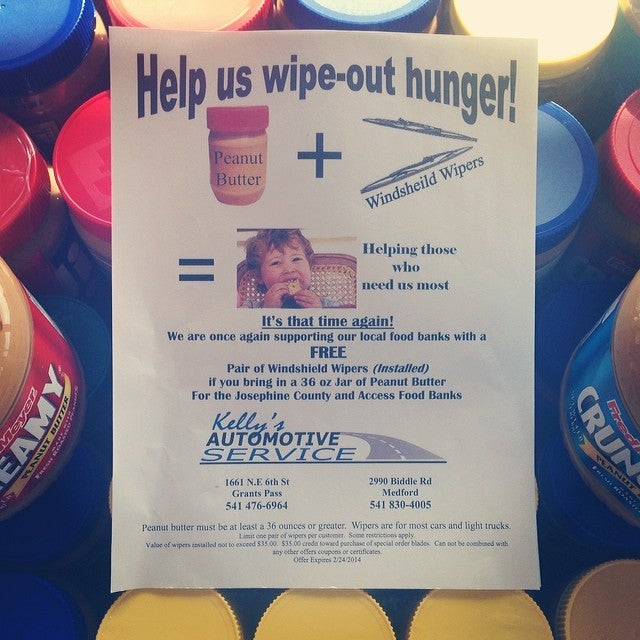 Help us wipe-out hunger!
Peanut
Butter
+
Windsheild Wipers
=
Helping those
who
need us most
It's that time again!
We are once again supporting our local food banks with a
FREE
Pair of Windshield Wipers (Installed)
if you bring in a 36 oz Jar of Peanut Butter
For the Josephine County and Access Food Banks
Kelly's
AUTOMOTIVE
SERVICE
1661 N.E 6th St
Grants Pass
541 476-6964
2990 Biddle Rd
Medford
541 830-4005
Peanut butter must be at least a 36 ounces or greater. Wipers are for most cars and light trucks.
Limit one pair of wipers per customer. Some restrictions apply.
Value of wipers installed not to exceed $35.00. $35.00 credit toward purchase of special order blades. Can not be combined with
any other offers coupons or certificates.
Offer Expires 2/24/2014
Meyer
EAMY
PEANUT BUTTER
CRUN
PEANUT